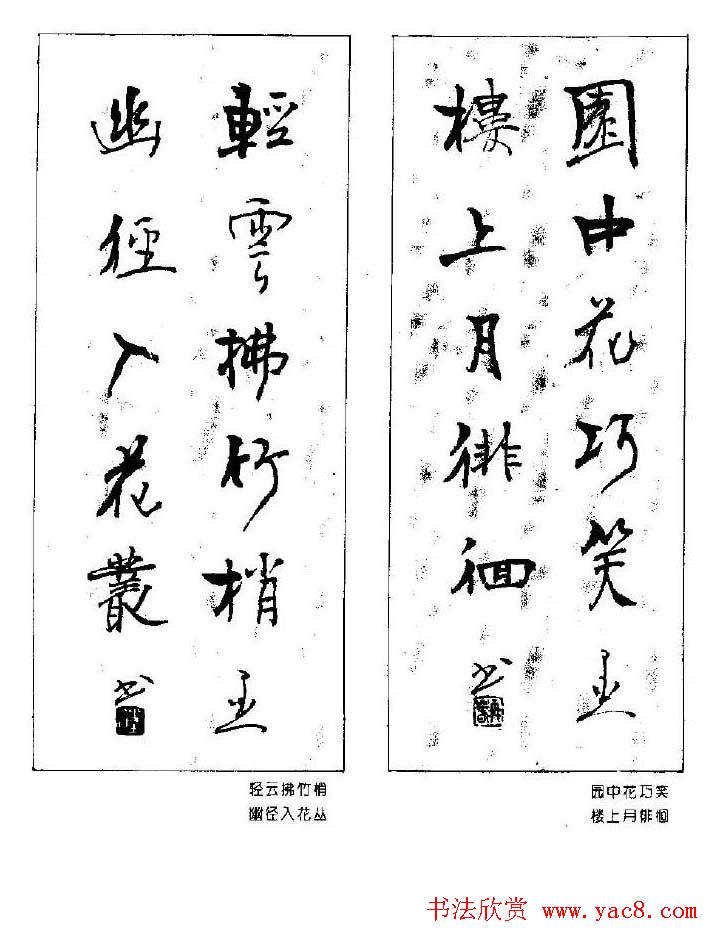 園中花巧笑
樓上月徘徊
书
輕雲拂竹梢
幽徑入花叢
书
园中花巧笑
楼上月徘徊
轻云拂竹梢
幽径入花丛
书法欣赏 www.yac8.com